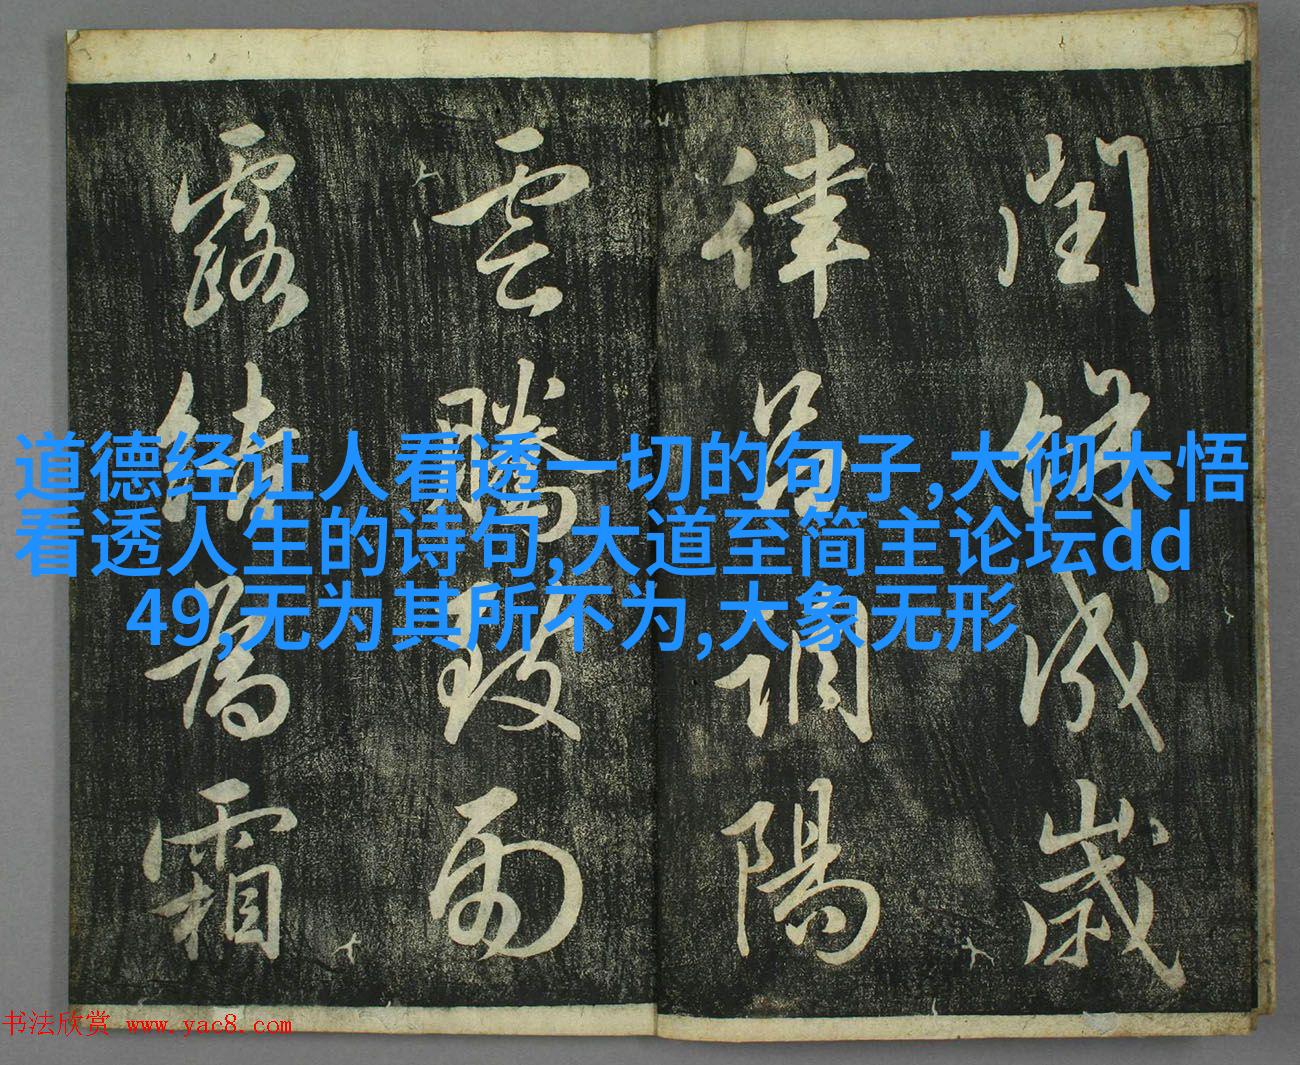 閏餘成歲
律呂調陽
雲騰致雨
露結為霜
道德经让人看透一切的句子,大彻大悟
看透人生的诗句,大道至简主论坛dd
49,无为其所不为,大象无形
书法欣赏 www.yac8.com